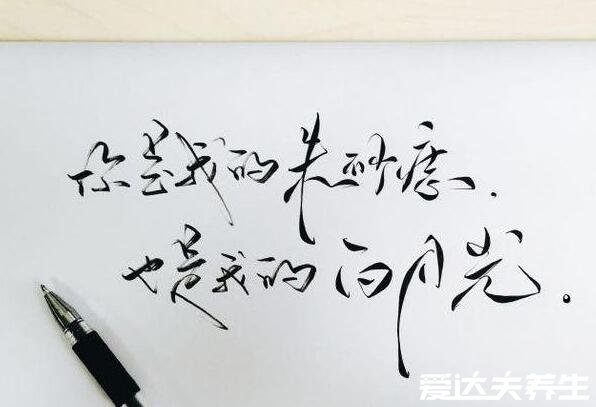 你是我的朱砂痣,
也是我的白月光.
爱达夫养生